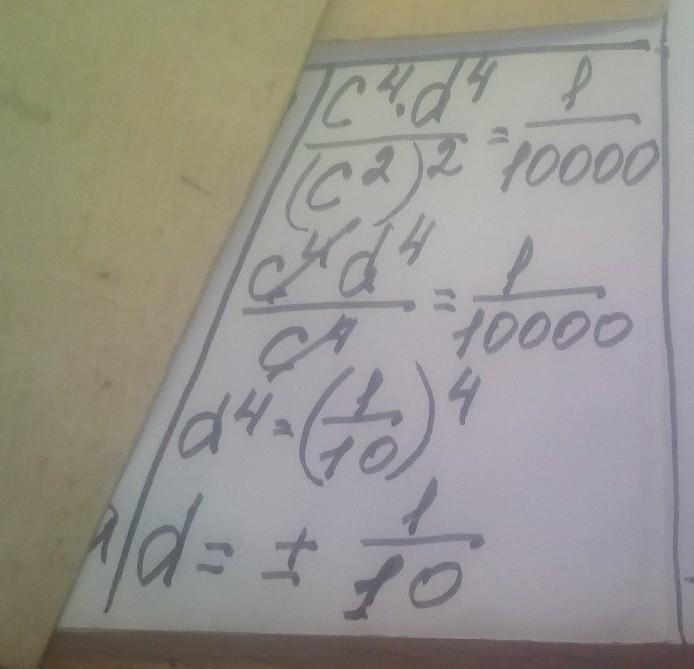 c⁴·d⁴/(c²)² = 1/10000
c⁴d⁴/c⁴ = 1/10000
d⁴ = (1/10)⁴
d = ± 1/10